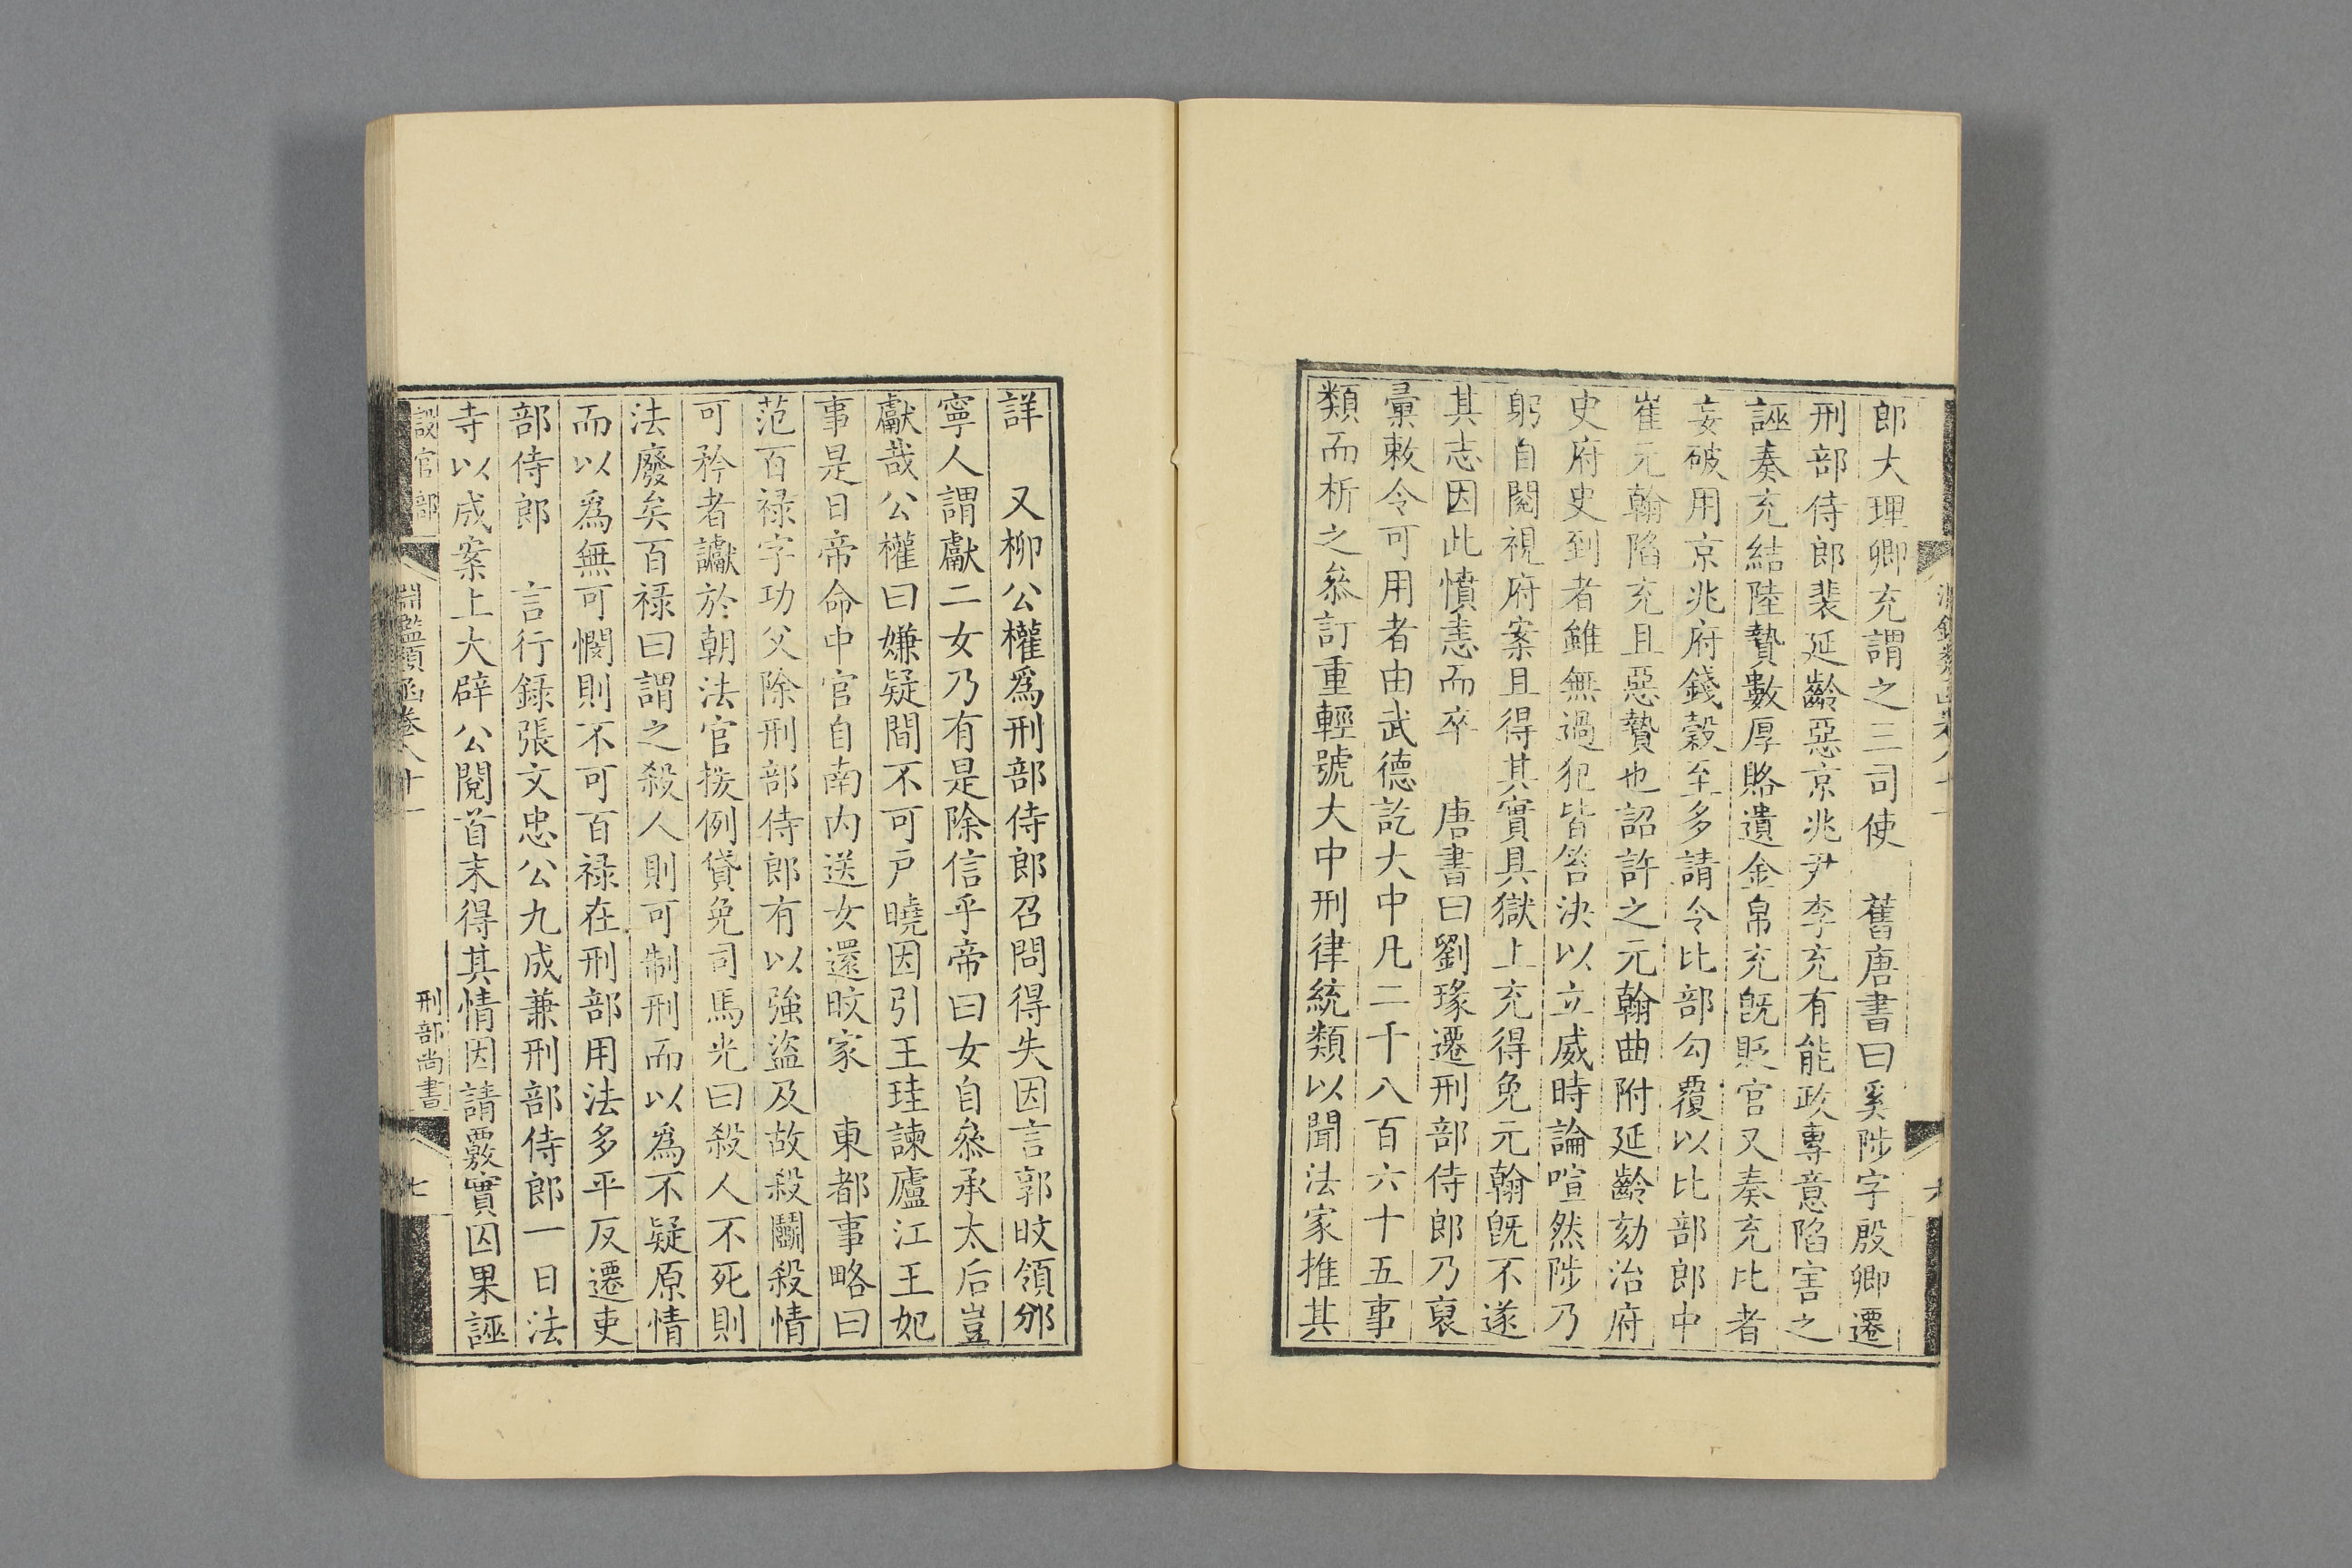 郎大理卿充謂之三司使　舊唐書曰奚陟字殷卿遷
刑部侍郎裴延齡惡京兆尹李充有能政專意陷害之
誣奏充結陸贄數厚賂遺金帛充旣貶官又奏充比者
妄破用京兆府錢穀至多請令比部勾覆以比部郎中
崔元翰陷充且惡贄也詔許之元翰曲附延齡劾治府
史府史到者雖無過犯皆笞決以立威時論喧然陟乃
躬自閱視府案且得其實具獄上充得免元翰旣不遂
其志因此憤恚而卒　唐書曰劉瑑遷刑部侍郎乃裒
彙敕令可用者由武德訖大中凡二千八百六十五事
類而析之叅訂重輕號大中刑律統類以聞法家推其
詳　又柳公權爲刑部侍郎召問得失因言郭旼領邠
寧人謂獻二女乃有是除信乎帝曰女自叅承太后豈
獻哉公權曰嫌疑間不可戸曉因引王珪諫廬江王妃
事是日帝命中官自南内送女還旼家　東都事略曰
范百禄字功父除刑部侍郎有以強盜及故殺鬭殺情
可矜者讞於朝法官援例貸免司馬光曰殺人不死則
法廢矣百禄曰謂之殺人則可制刑而以爲不疑原情
而以爲無可憫則不可百禄在刑部用法多平反遷吏
部侍郎　言行録張文忠公九成兼刑部侍郎一日法
寺以成案上大辟公閱首末得其情因請覈實囚果誣
設官部　淵鑑類函卷八十一　刑部尚書　七